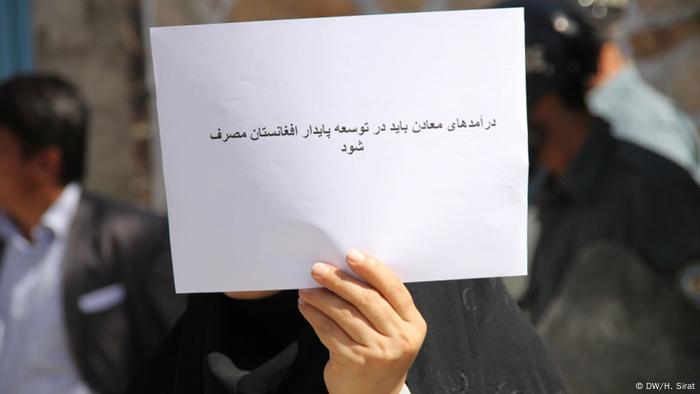 درآمدهای معادن باید در توسعه پایدار افغانستان مصرف
شود
© DW/H. Sirat